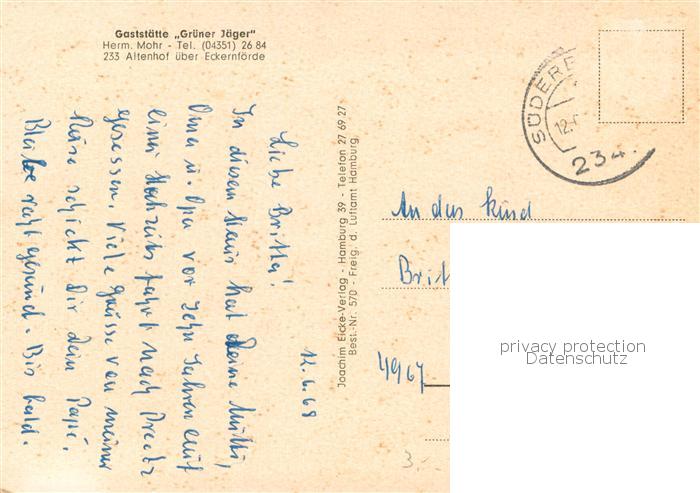 Gaststätte „Grüner Jäger"
Herm. Mohr - Tel. (04351) 26 84
233 Altenhof über Eckernförde
12.6.68
Liebe Britta!
In diesem Haus hat deine Mutti,
Oma u. Opa vor Jahren auf
einer Hochzeitsfahrt nach Preetz
gegessen. Viele Grüsse von meiner
Reise schickt Dir dein Papi.
Bleibe recht gesund. Bis bald.
Joachim Eicke-Verlag - Hamburg 39 - Telefon 27 69 27
Best.-Nr. 570 - Freig. d. Luftamt Hamburg
SÜDERB
12.
234
An das Kind
Brit
4967
3.-
privacy protection
Datenschutz